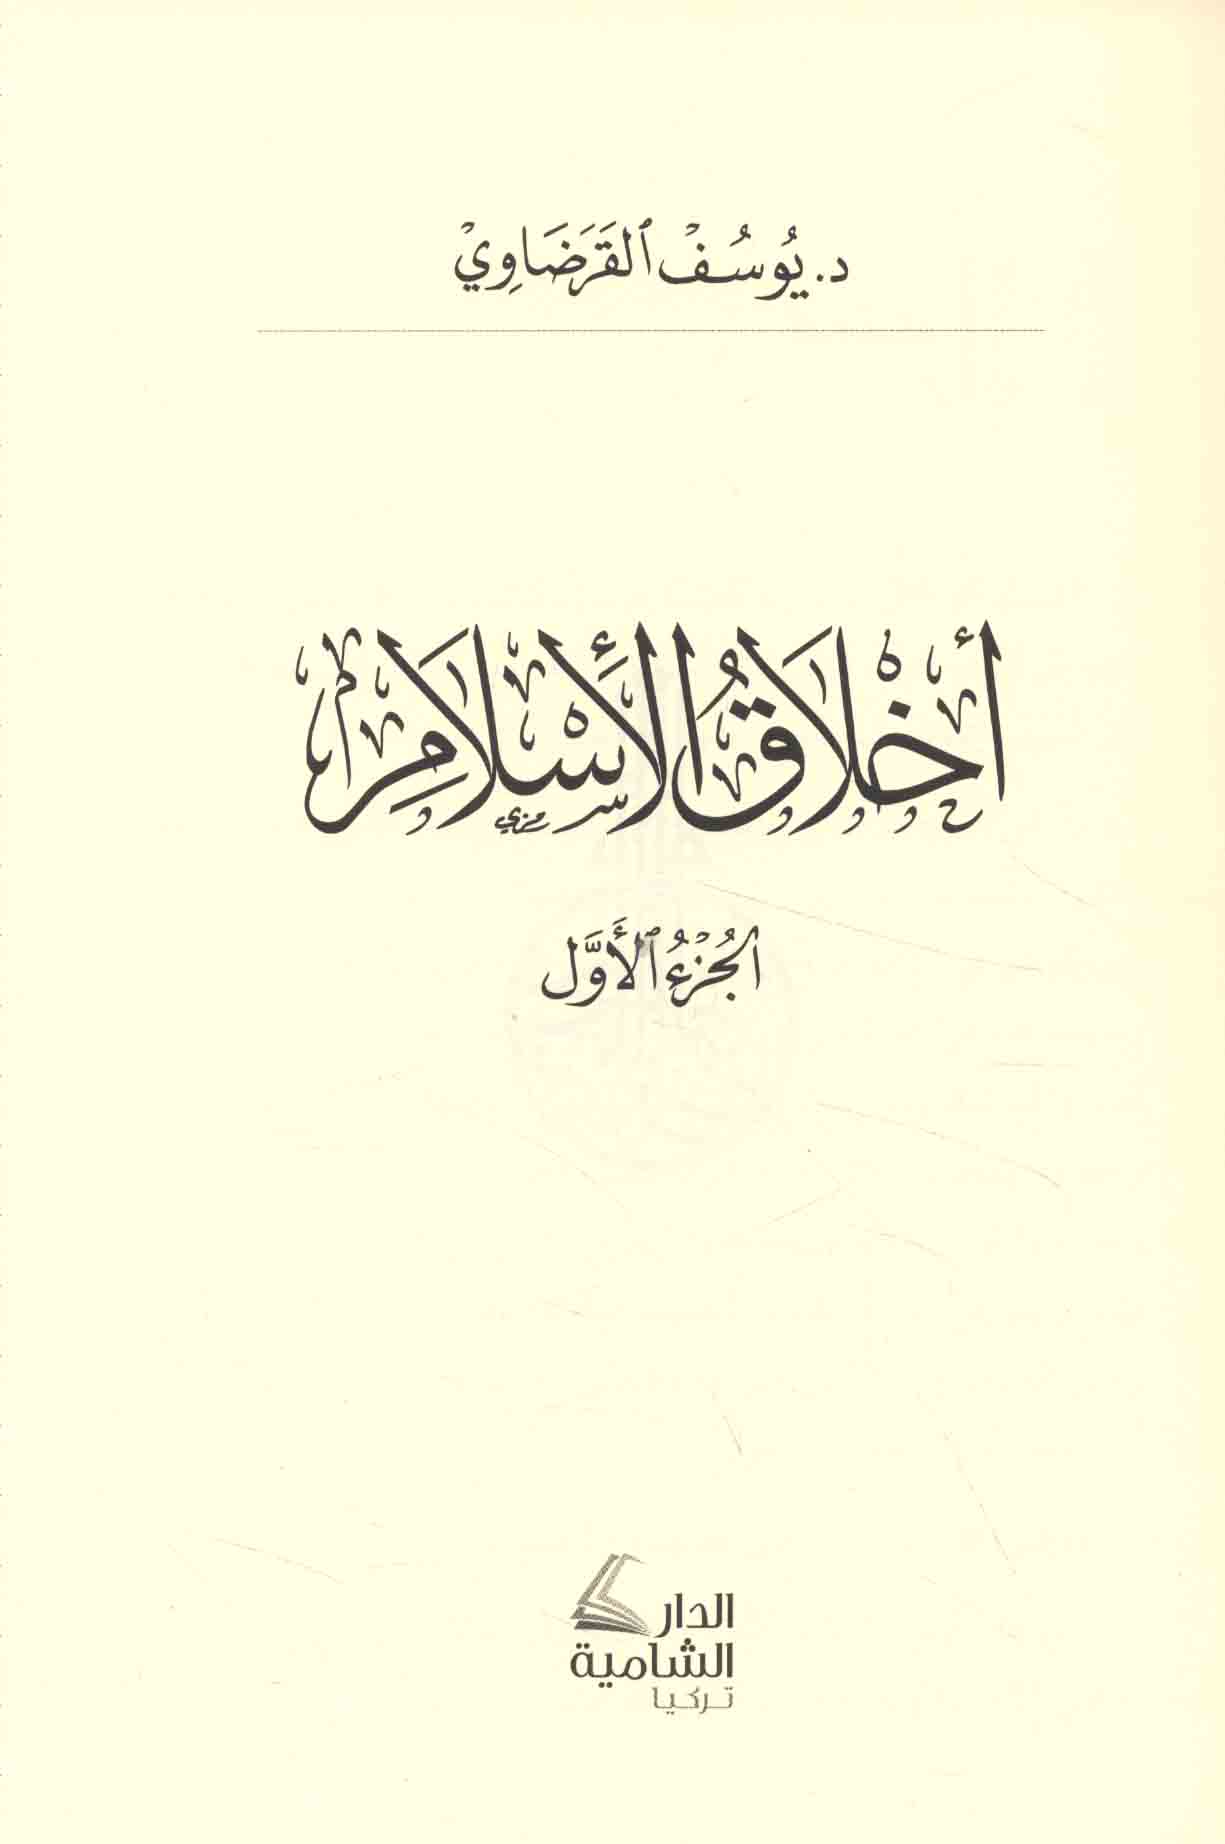 د. يُوسُفْ ٱلقَرَضَاوِيْ
أَخْلَاقُ الْأَسْلَامِ
الجُزْءُ ٱلْأَوَّل
الدار
الشامية
تركيا